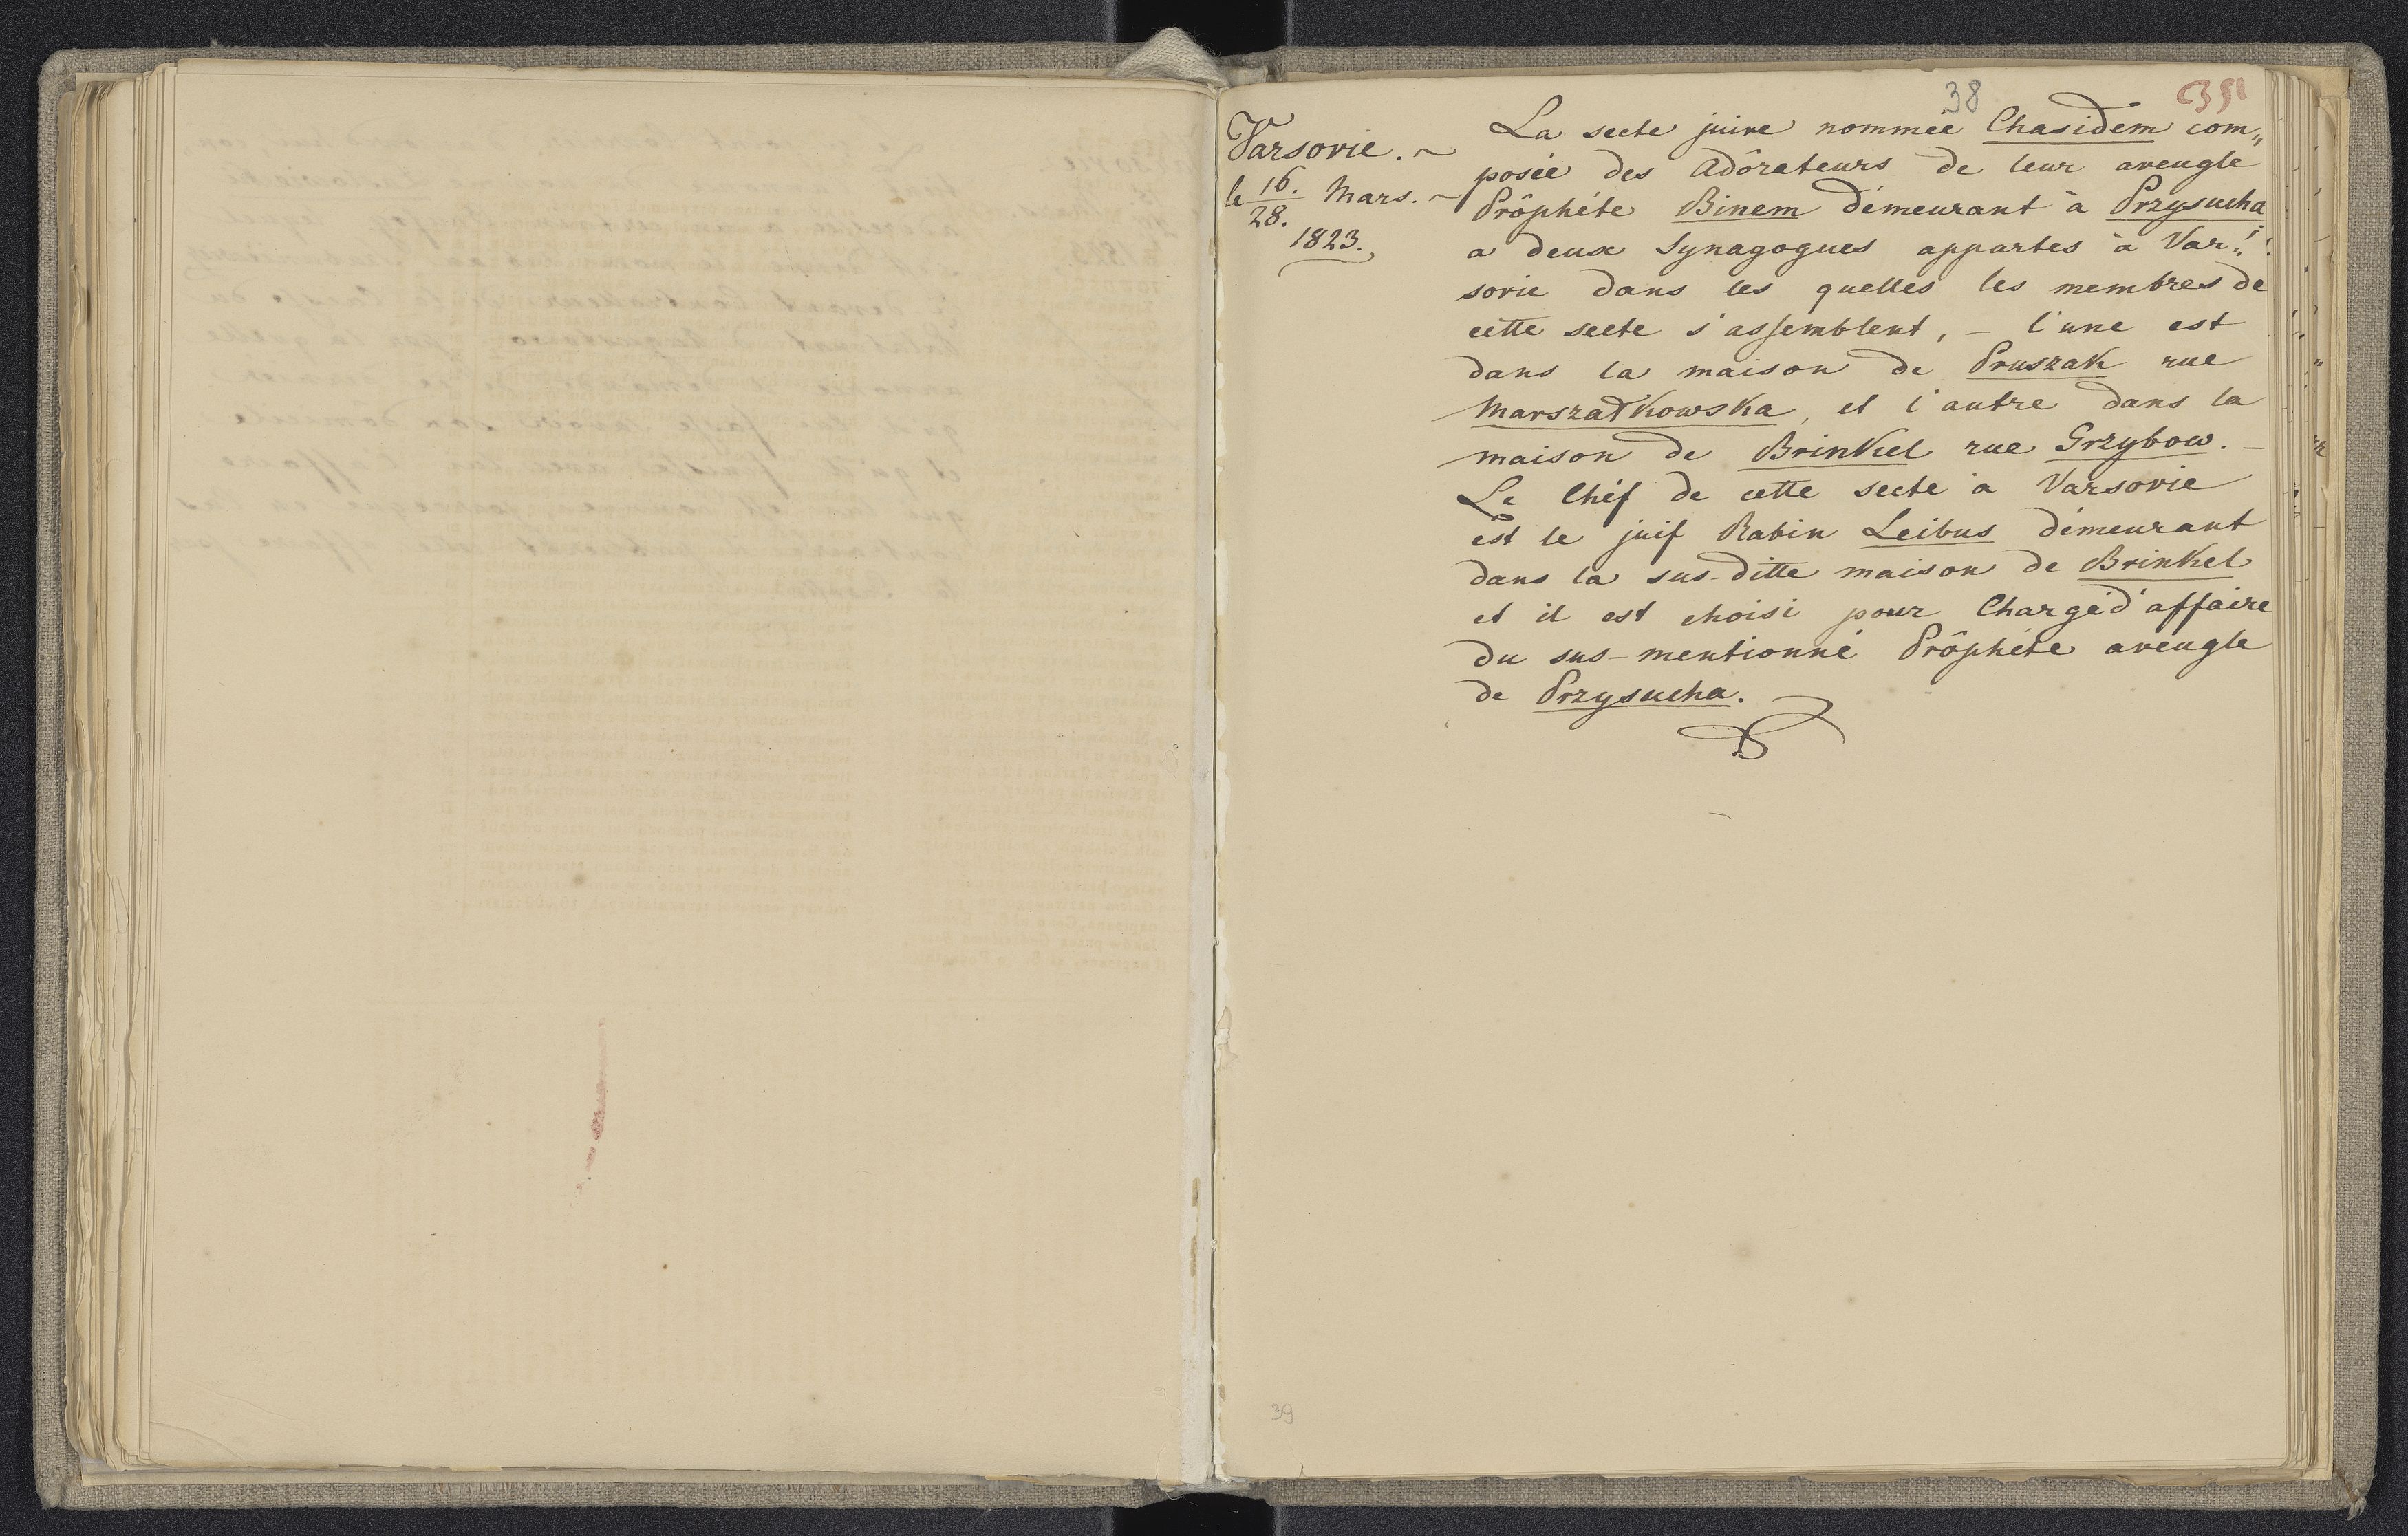 38
351
Varsovie. ~
le 16./28. Mars. ~
1823.
La secte juive nommée Chasidem com„
posée des Adôrateurs de leur aveugle
Prôphéte Binem démeurant à Przysucha
a deux Synagogues appartes à Var„
sovie dans les quelles les membres de
cette secte s'assemblent, – l'une est
dans la maison de Pruszak rue
Marszałkowska, et l'autre dans la
maison de Brinkel rue Grzybow. –
Le Chéf de cette secte à Varsovie
est le juif Rabin Leibus démeurant
dans la sus-ditte maison de Brinkel
et il est choisi pour Chargé d'affaire
du sus-mentionné Prôphéte aveugle
de Przysucha.
39